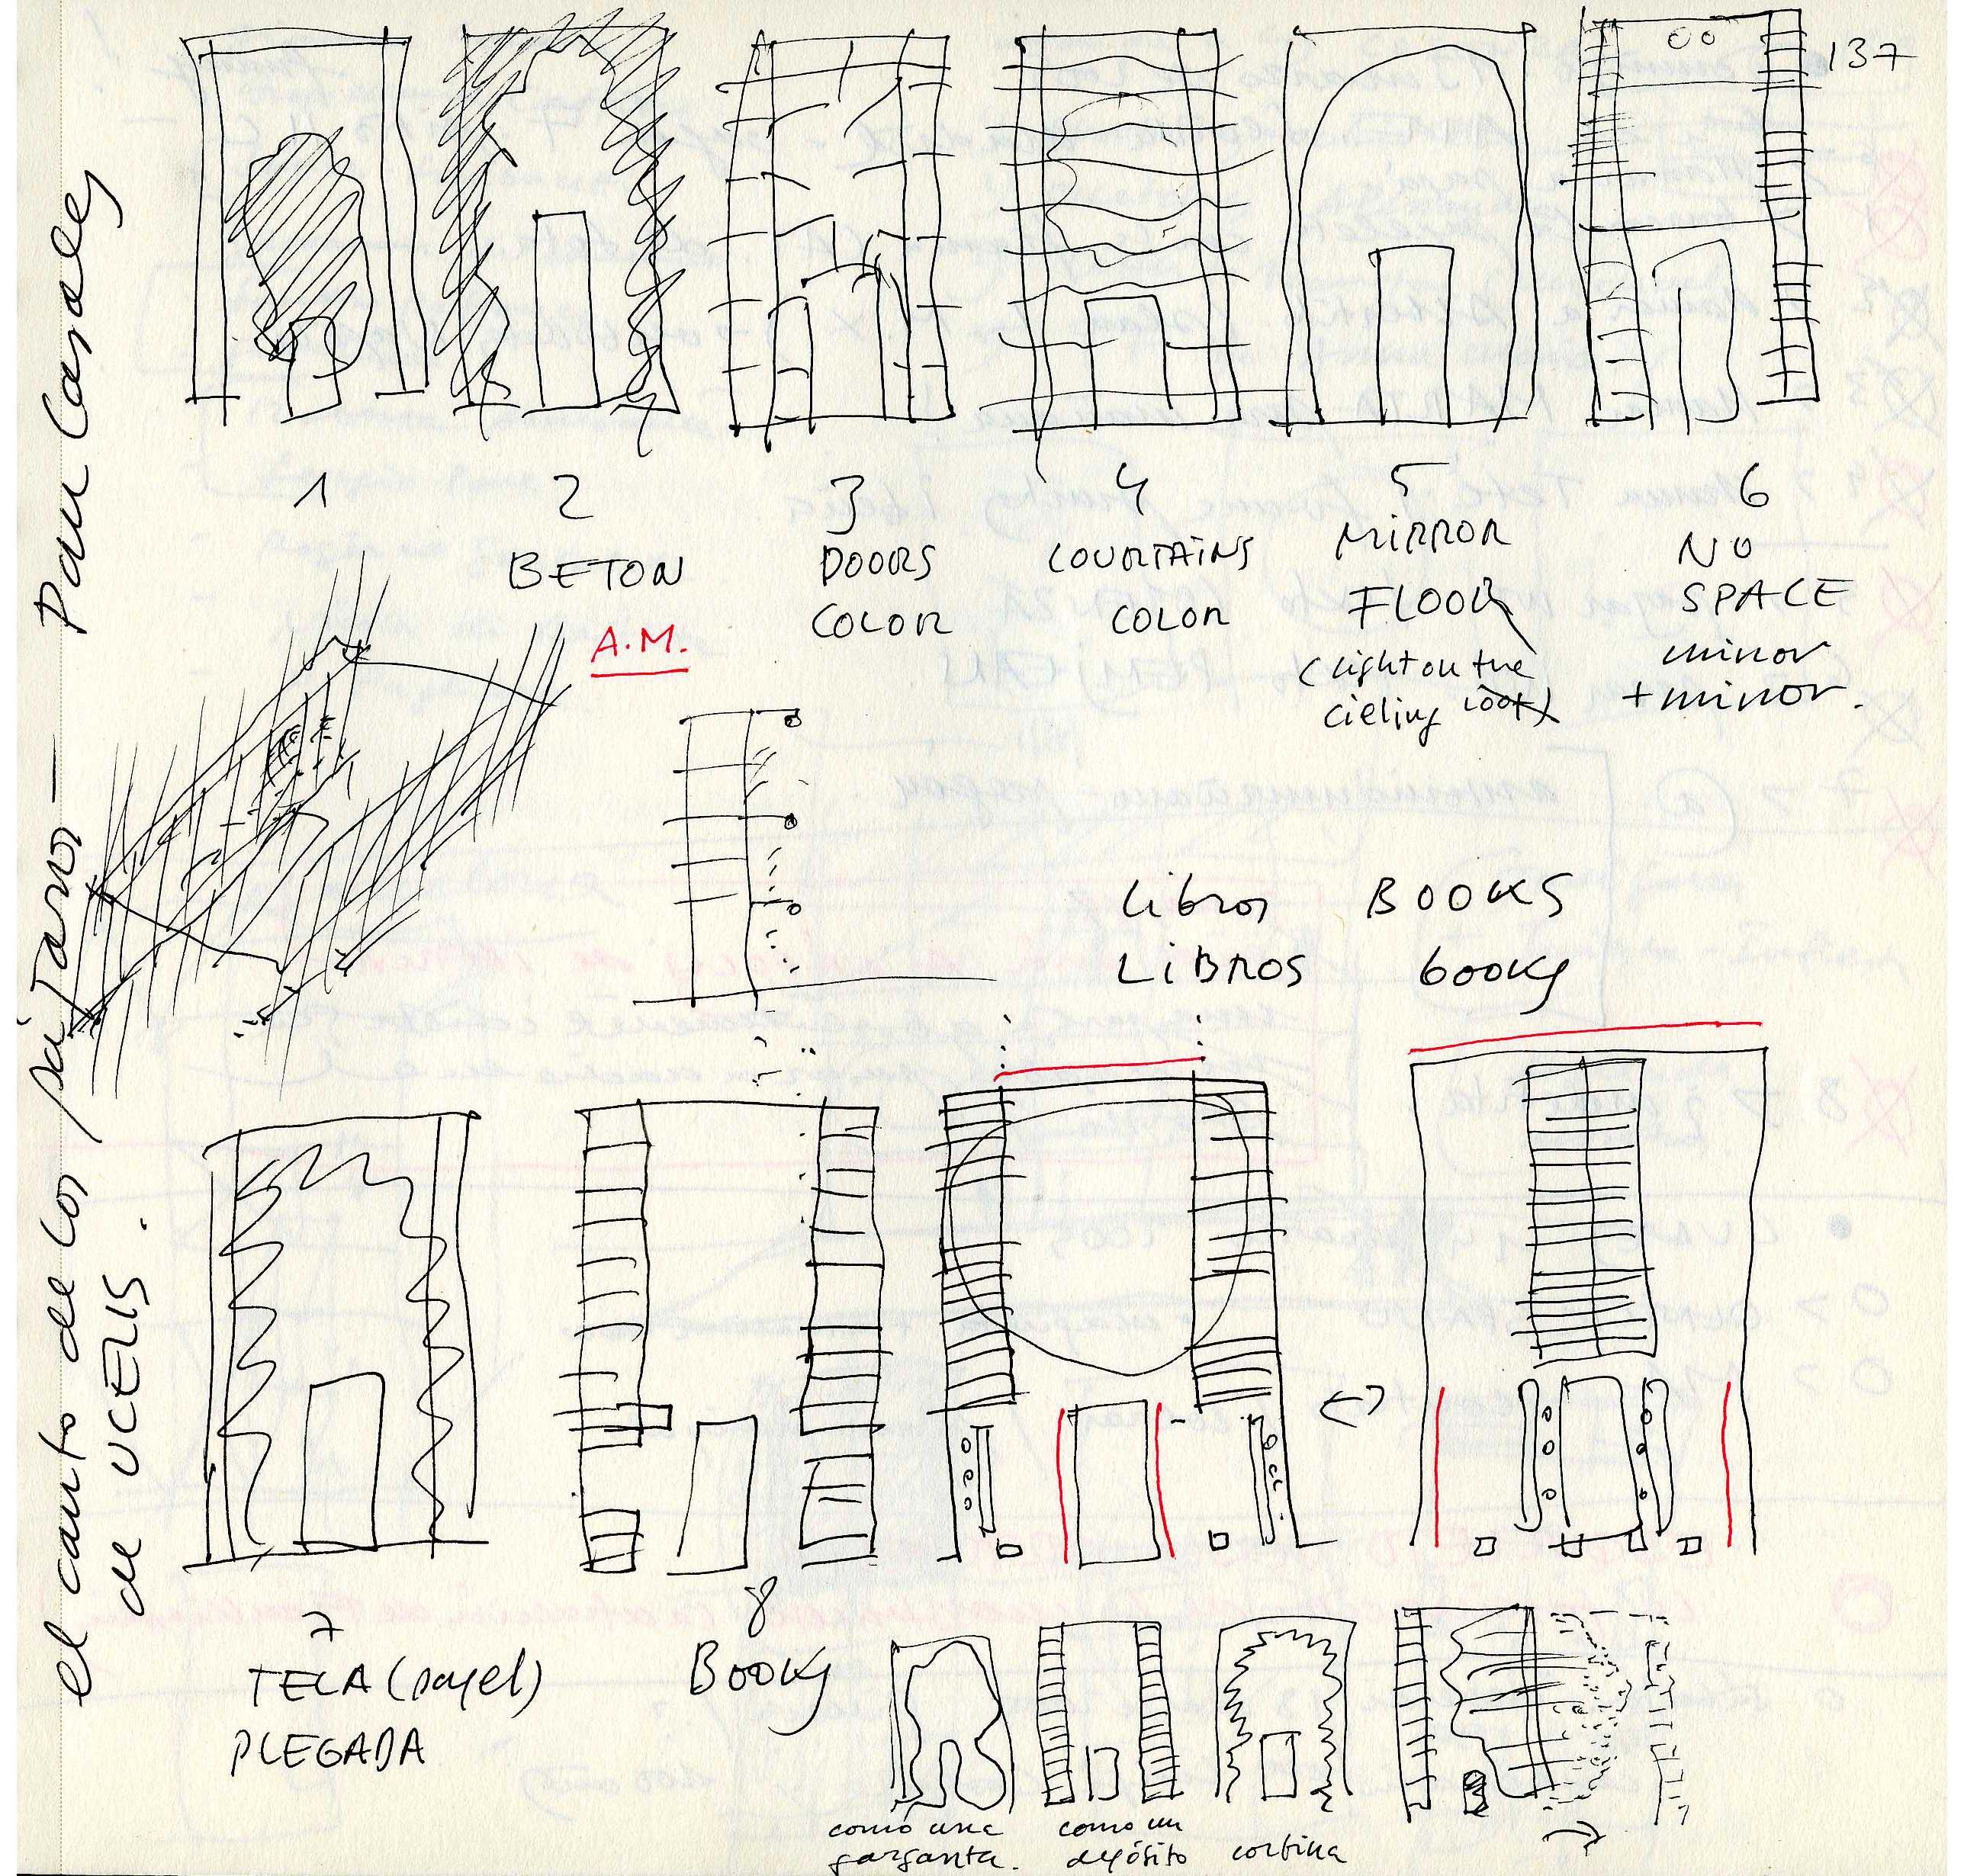 137
1
2
BETON
A.M.
3
DOORS
COLOR
4
COURTAINS
COLOR
5
MIRROR
FLOOR
(light on the
cieling
6
NO
SPACE
mirror
+ mirror.
Libros BOOKS
LIBROS books
7
TELA (papel)
PLEGADA
8
Books
como una
garganta.
como un
depósito
cortina
el canto de los pájaros — Pau Casals
de UCELIS.